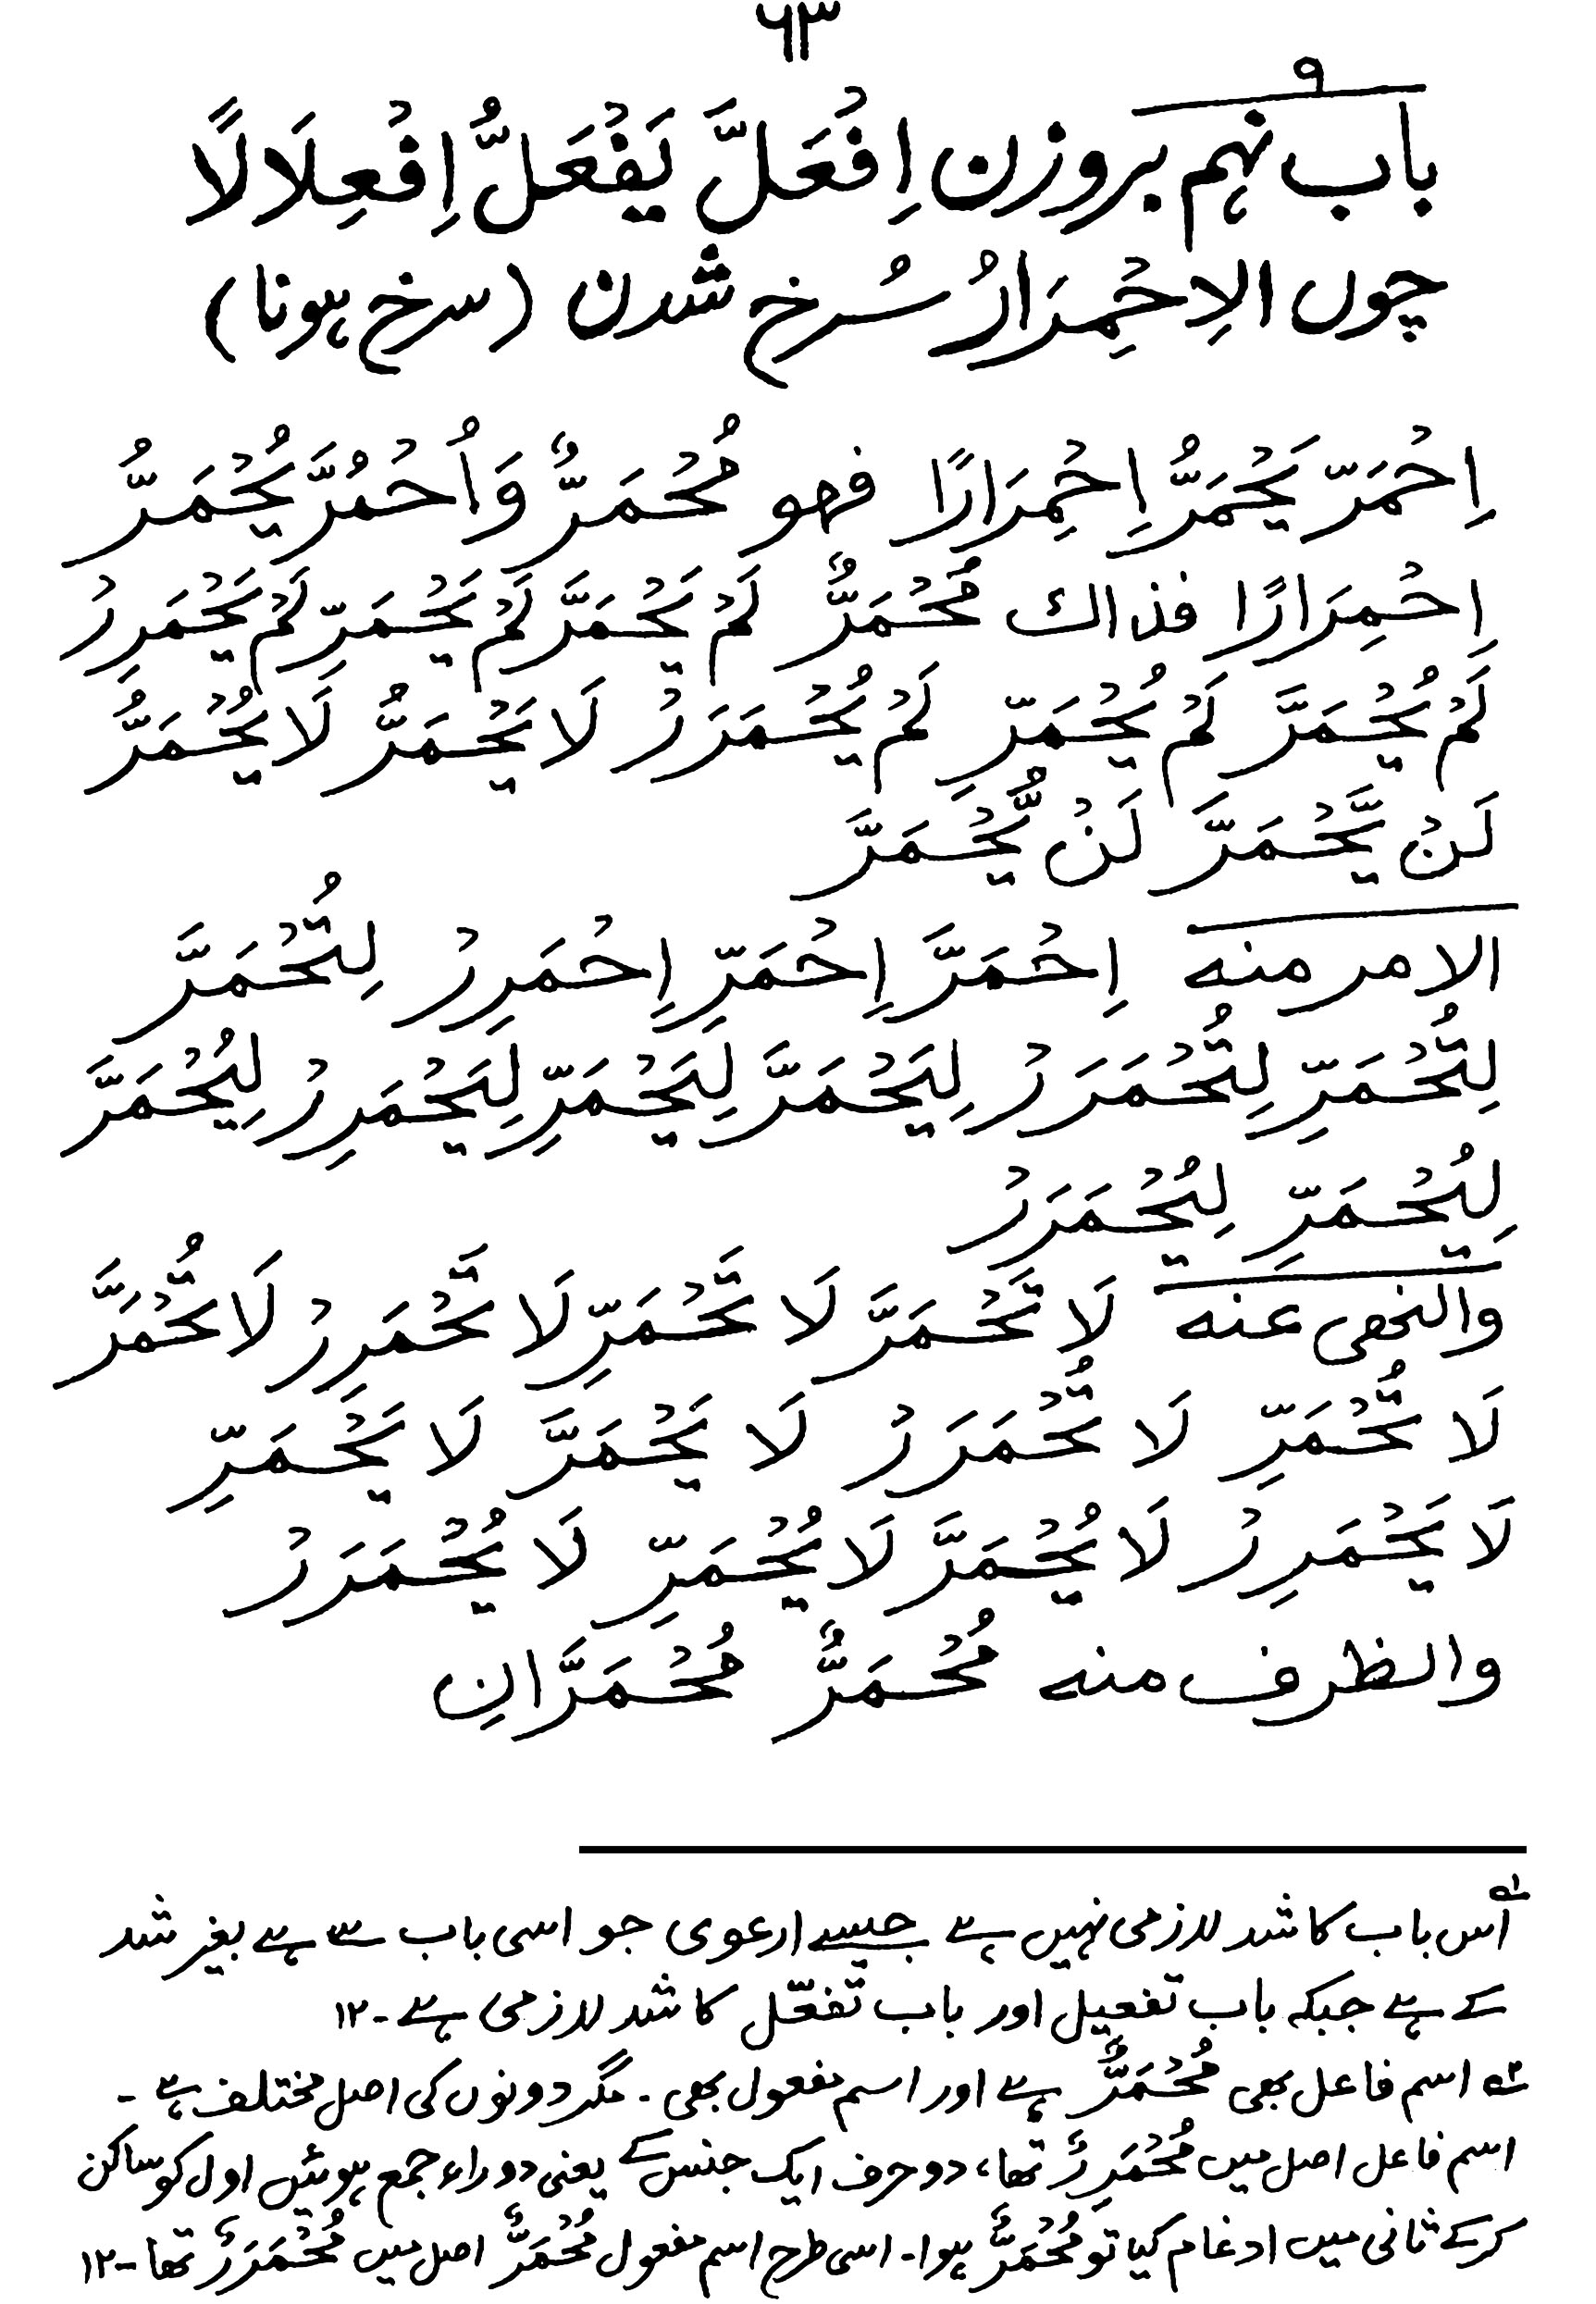 ٦٣
٩
باب نہم بروزن اِفْعَلَّ يَفْعَلُّ اِفْعِلَالًا
چوں الِاحْمِرَارُ سُرخ شدن (سرخ ہونا)
اِحْمَرّ يَحْمَرُّ اِحْمِرَارًا فهو مُحْمَرٌّ وَاُحْمُرَّ يُحْمَرُّ
اِحْمِرَارًا فذاك مُحْمَرٌّ لَمْ يَحْمَرَّ لَمْ يَحْمَرِّ لَمْ يَحْمَرِرْ
لَمْ يُحْمَرَّ لَمْ يُحْمَرِّ لَمْ يُحْمَرَرْ لَا يَحْمَرُّ لَا يُحْمَرُّ
لَنْ يَّحْمَرَّ لَنْ يُّحْمَرَّ
الامر منه اِحْمَرَّ اِحْمَرِّ اِحْمَرِرْ لِتُحْمَرَّ
لِتُحْمَرِّ لِتُحْمَرَرْ لِيَحْمَرَّ لِيَحْمَرِّ لِيَحْمَرِرْ لِيُحْمَرَّ
لِيُحْمَرِّ لِيُحْمَرَرْ
والنهى عنه لَا تَحْمَرَّ لَا تَحْمَرِّ لَا تَحْمَرِرْ لَا تُحْمَرَّ
لَا تُحْمَرِّ لَا تُحْمَرَرْ لَا يَحْمَرَّ لَا يَحْمَرِّ
لَا يَحْمَرِرْ لَا يُحْمَرَّ لَا يُحْمَرِّ لَا يُحْمَرَرْ
والظرف منه مُحْمَرٌّ مُحْمَرَّانِ
؂۱ اس باب کا شد لازمی نہیں ہے جیسے ارعوی جو اسی باب سے ہے بغیر شد
کے ہے جبکہ باب تفعیل اور باب تفعّل کا شد لازمی ہے۔۱۲
؂۲ اسم فاعل بھی مُحْمَرٌّ ہے اور اسم مفعول بھی۔ مگر دونوں کی اصل مختلف ہے۔
اسم فاعل اصل میں مُحْمَرِرٌ تھا، دو حرف ایک جنس کے یعنی دو راء جمع ہوئیں اول کو ساکن
کرکے ثانی میں ادغام کیا تو مُحْمَرٌّ ہوا۔ اسی طرح اسم مفعول مُحْمَرٌّ اصل میں مُحْمَرَرٌ تھا۔۱۲